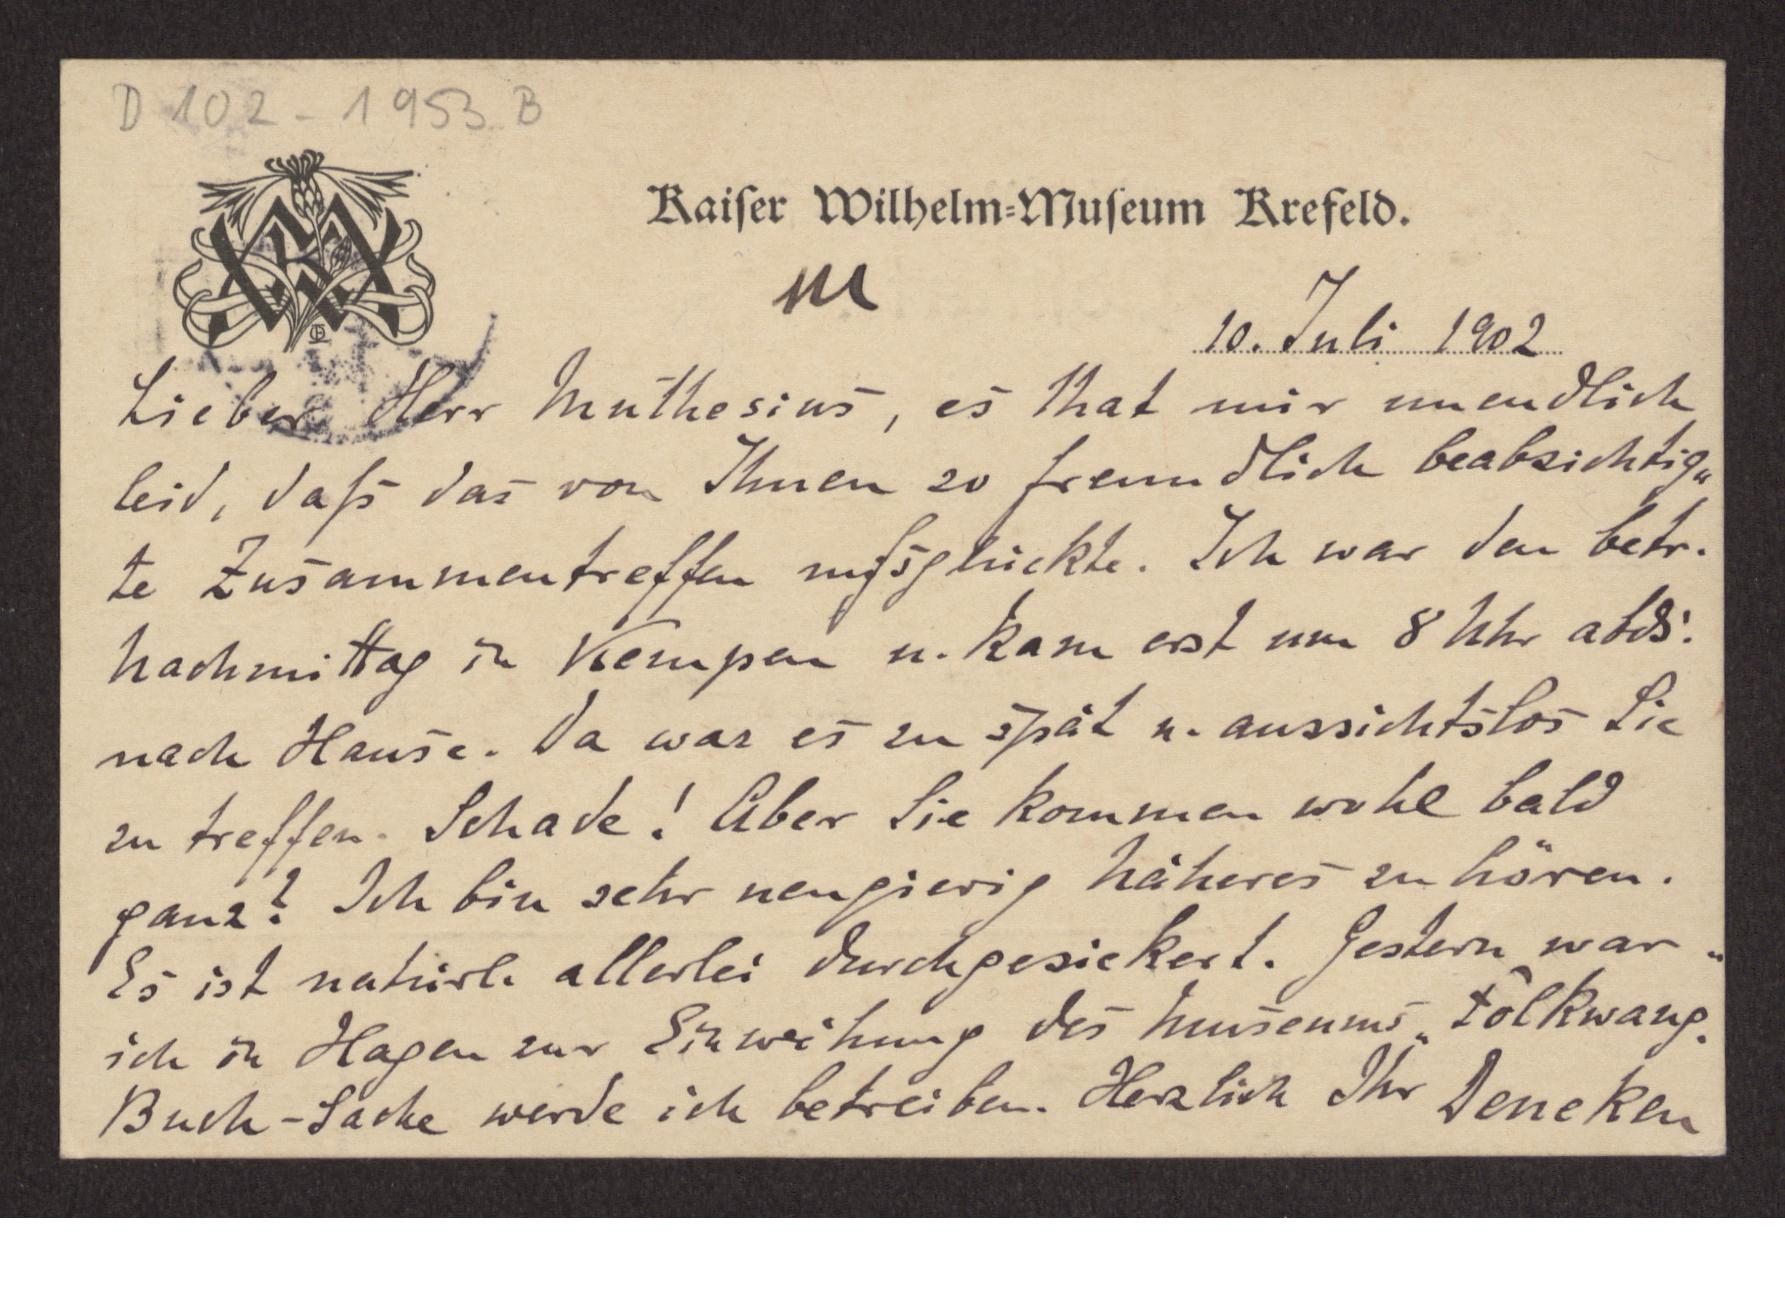 D 102 - 1953 B
Kaiſer Wilhelm=Muſeum Krefeld.
M
10. Juli 1902
Lieber Herr Muthesius, es that mir unendlich
leid, daß das von Ihnen so freundlich beabsichtig„
te Zusammentreffen mißglückte. Ich war den betr.
Nachmittag in Kempen u. kam erst um 8 Uhr abds.
nach Hause. Da war es zu spät u. aussichtslos Sie
zu treffen. Schade! Aber Sie kommen wohl bald
ganz? Ich bin sehr neugierig Näheres zu hören.
Es ist natürl. allerlei durchgesickert. Gestern war
ich in Hagen zur Einweihung des Museums „Folkwang.“
Buch-Sache werde ich betreiben. Herzlich Ihr Deneken